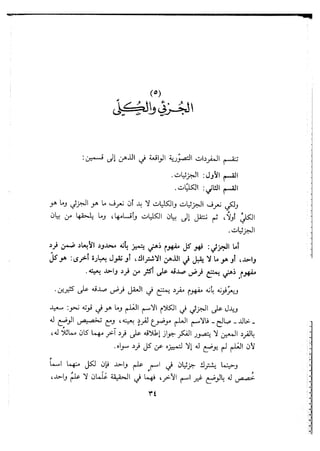 (٥)
الجُزئي والكُلّي
تنقسم المفردات التصوّرية الواقعة في الذهن إلى قسمين:
القسم الأول: الجزئيات.
القسم الثاني: الكليّات.
ولكي نعرف الجزئيات والكليات لا بد أن نعرف ما هو الجزئي وما هو
الكلي أولاً، ثم ننتقل إلى بيان الكليات وأقسامها، وما يلحقها من بيان
الجزئيات.
أما الجزئي: فهو كل مفهوم ذهني يتميز بأنه محدود الأبعاد ضمن فرد
واحد، أو هو ما لا يقبل في الذهن الاشتراك، أو نقول بعبارة أخرى: هو كل
مفهوم ذهني يمتنع فرض صدقه على أكثر من فرد واحد بعينه.
ويعرّفونه بأنه مفهوم مفرد يمتنع في العقل فرض صدقه على كثيرين.
ويدل على الجزئي في الكلام الاسم العَلَم وما هو في قوته نحو: سعيد
- خالد - صالح - فالاسم العلم موضوع لفرد بعينه، ومع تخصيص الوضع له
بالفرد المعين لا يتصور الفكر جواز إطلاقه على فرد آخر مهما كان مماثلاً له،
لأن العَلَم لم يوضع له إلا لتمييزه عن كل فرد سواه.
وحينما يشترك جزئيان في اسم علم واحد فإن لكل منهما اسماً
خصص له بالوضع غير اسم الآخر، فهما في الحقيقة عَلَمان لا علم واحد،
٣٤